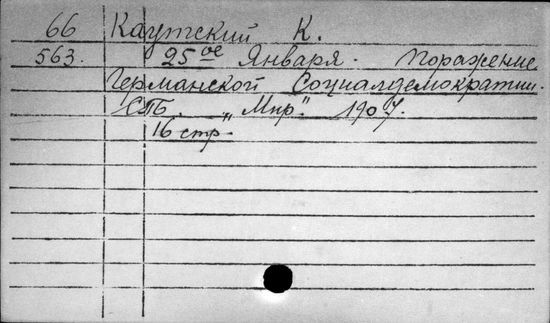 66 Каутский К.
563. 25ое Января. Поражение
Германской Социалдемократии.
СПБ. „Мир." 1907.
16 стр.